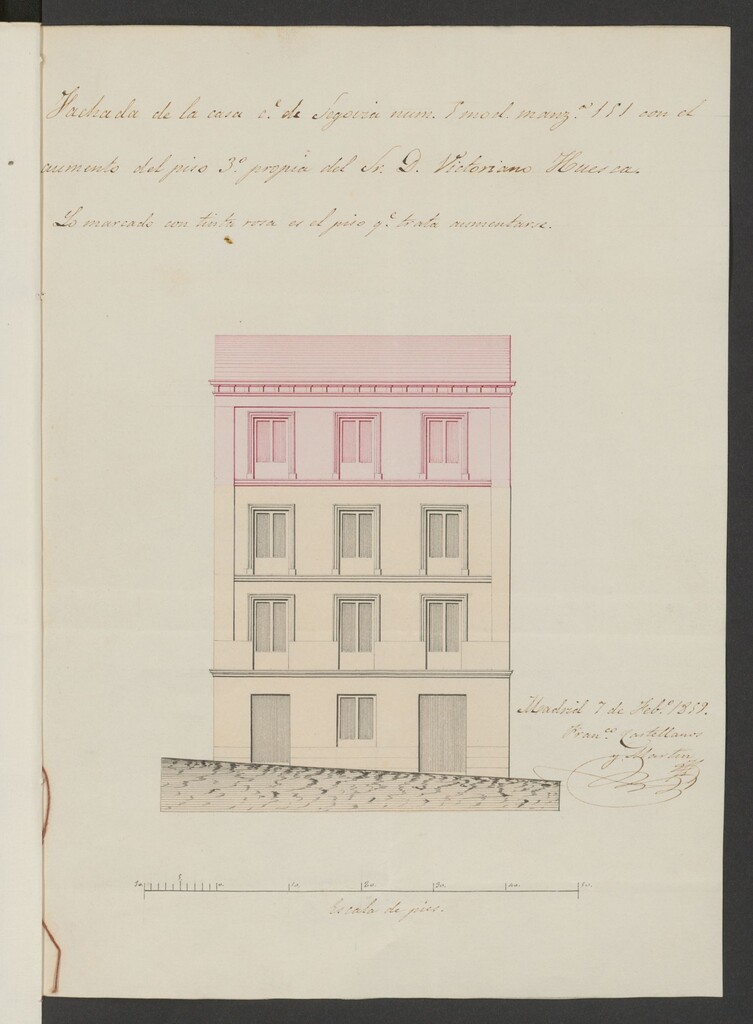 Fachada de la casa c.e de Segovia num. 7 mod. manz.a 151 con el
aumento del piso 3.o propia del Sr. D. Victoriano Huesca.
Lo marcado con tinta rosa es el piso q.e trata aumentarse.
Madrid 7 de Feb.o 1859.
Fran.co Castellanos
y Martin
10 5 0 10 20 30 40 50
Escala de pies.